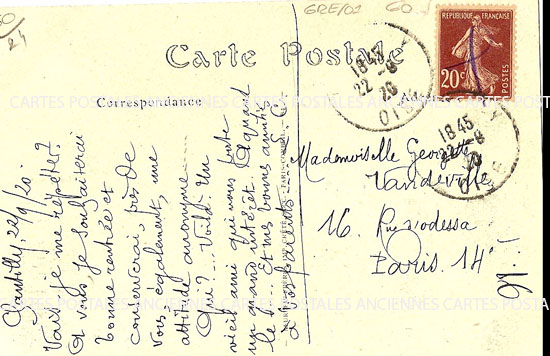 GRE/01
60
24
Carte Postale
Correspondance
RÉPUBLIQUE FRANÇAISE
20c
POSTES
18 45
22-9
20
OISE
18 45
22-9
20
OISE
CARTES POSTALES ANCIENNES CARTES POSTALES ANCIENNES
Chantilly, 22/9/20
Vais-je me répéter?
A vous, je souhaiterai
bonne rentrée et
conserverai, près de
vous, également, une
attitude anonyme
Qui?... Voilà. Un
vieil ami qui vous porte
un grand intérêt. A quand
le b... Et mes bonnes amitiés
à vos parents. G.
Mademoiselle Georgette
Vandeville
16. Rue d'odessa
Paris. 14e